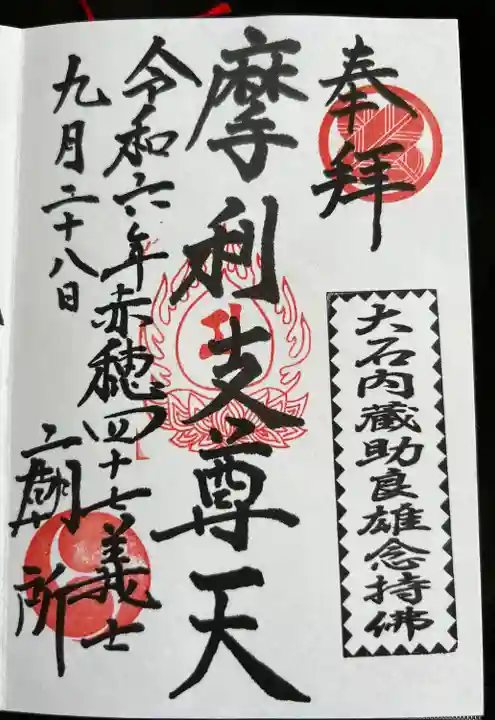 奉拝
大石内蔵助良雄念持佛
摩利支尊天
令和六年赤穂四十七義士
九月二十八日
廟所